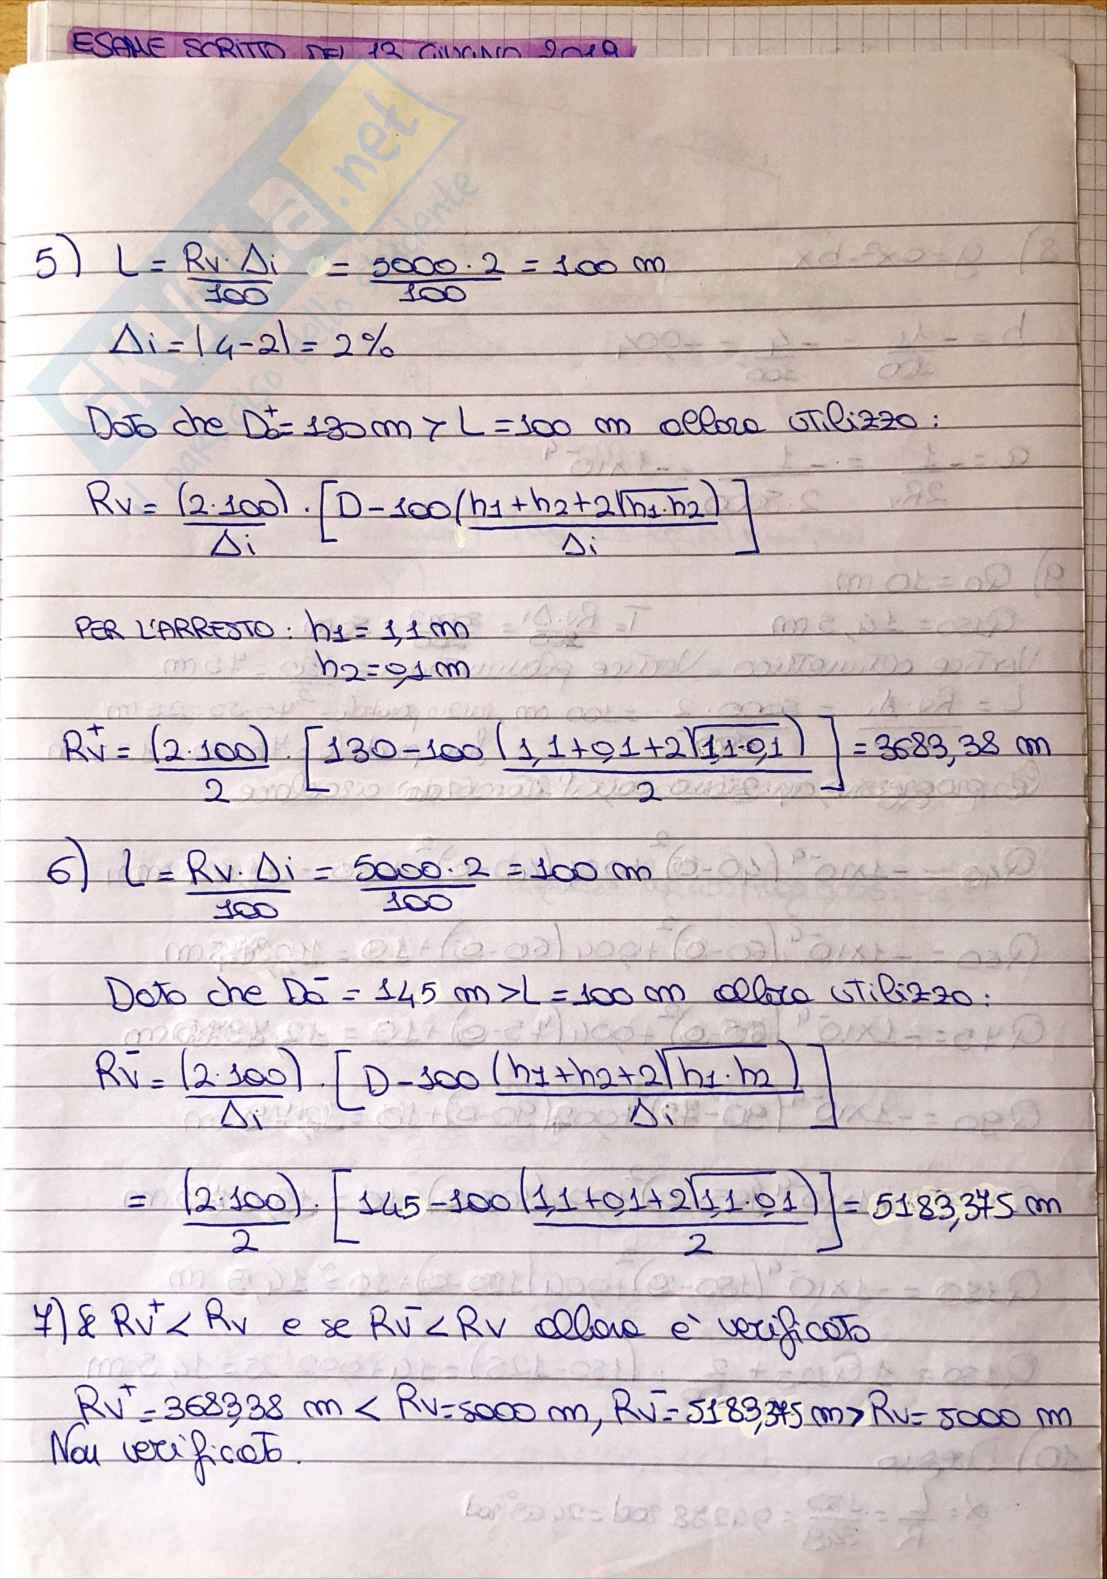 ESAME SCRITTO DEL 13 GIUGNO 2019
SKUOLA.net
5) L = Rv·Δi/100 = 5000·2/100 = 100 m
Δi = |4-2| = 2%
Dato che Da+ = 130 m > L = 100 m allora utilizzo:
Rv = (2·100)/Δi · [D - 100 (h1+h2+2√h1·h2)/Δi]
PER L'ARRESTO: h1 = 1,1 m
h2 = 0,1 m
Rv+ = (2·100)/2 · [130 - 100 (1,1+0,1+2√1,1·0,1)/2] = 3683,38 m
6) L = Rv·Δi/100 = 5000·2/100 = 100 m
Dato che Da- = 145 m > L = 100 m allora utilizzo:
Rv- = (2·100)/Δi · [D - 100 (h1+h2+2√h1·h2)/Δi]
= (2·100)/2 · [145 - 100 (1,1+0,1+2√1,1·0,1)/2] = 5183,375 m
7) Se Rv+ < Rv e se Rv- < Rv allora è verificato
Rv+ = 3683,38 m < Rv = 5000 m, Rv- = 5183,375 m > Rv = 5000 m
Non verificato.